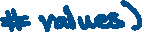 # values)